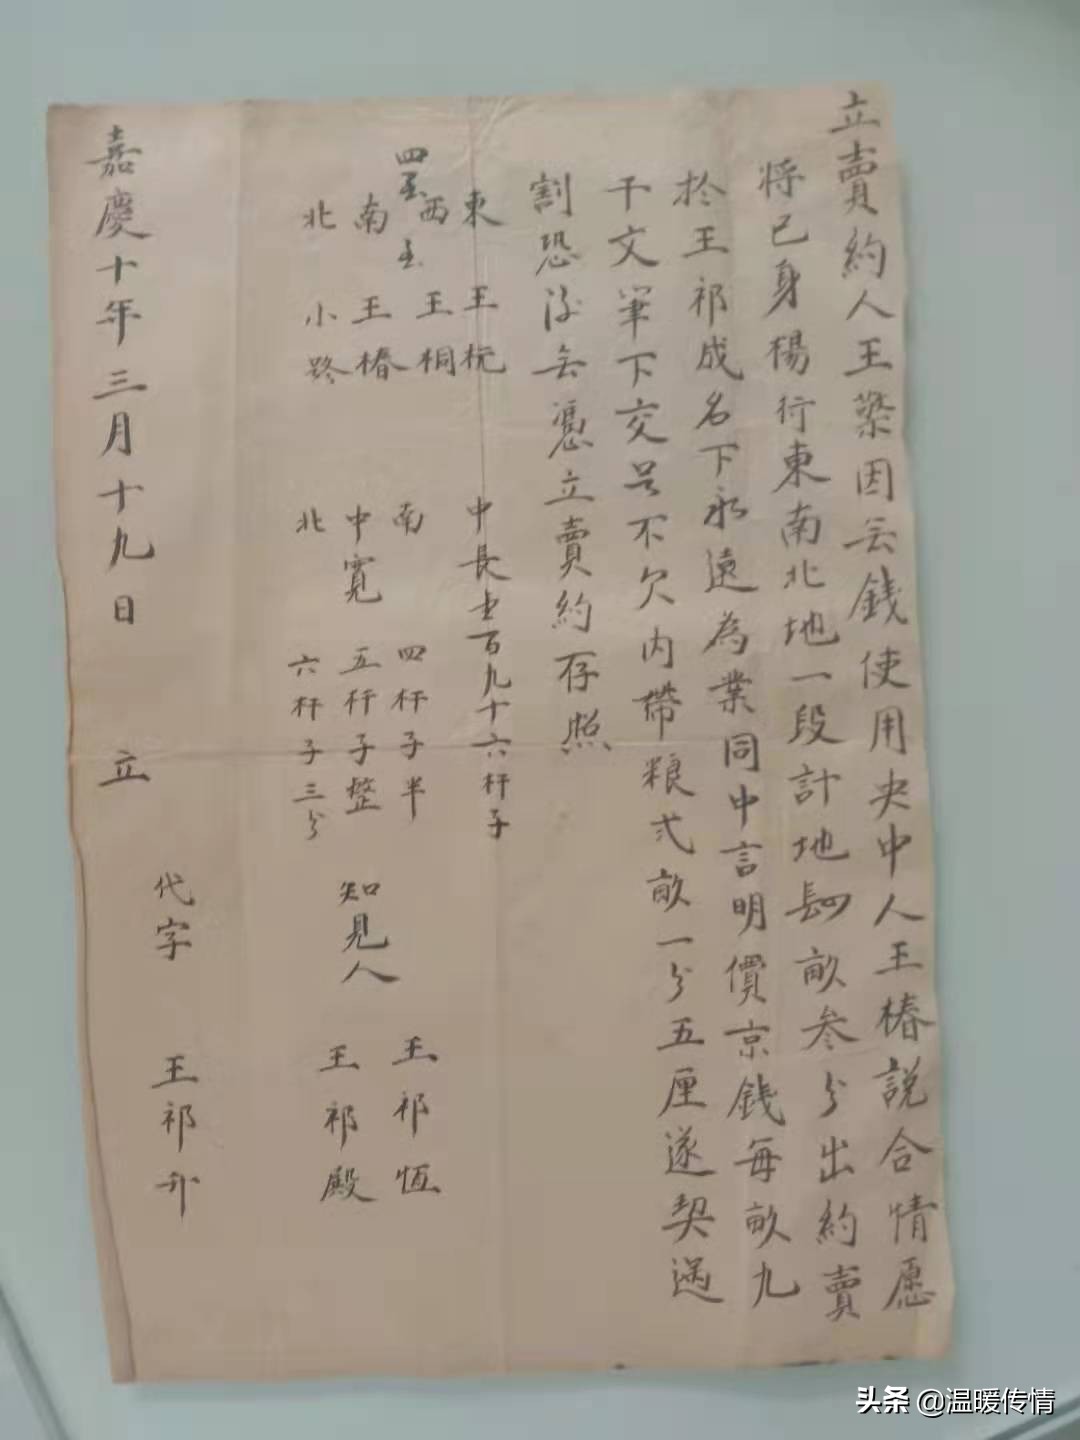 立賣約人王榮因无錢使用央中人王椿說合情愿
將己身楊行東南北地一段計地四畝叁分出約賣
扵王祁成名下永遠為業同中言明價京錢每畝九
千文筆下交足不欠內帶粮弍畝一分五厘遂契過
割恐後无憑立賣約存照
東 王杬
四至 西至 王桐
南 王椿
北 小路
中長 百九十六杆子
南 四杆子半
中寬 五杆子整
北 六杆子三分
知見人 王祁恆
王祁殿
代字 王祁
嘉慶十年三月十九日 立
头条 @温暖传情